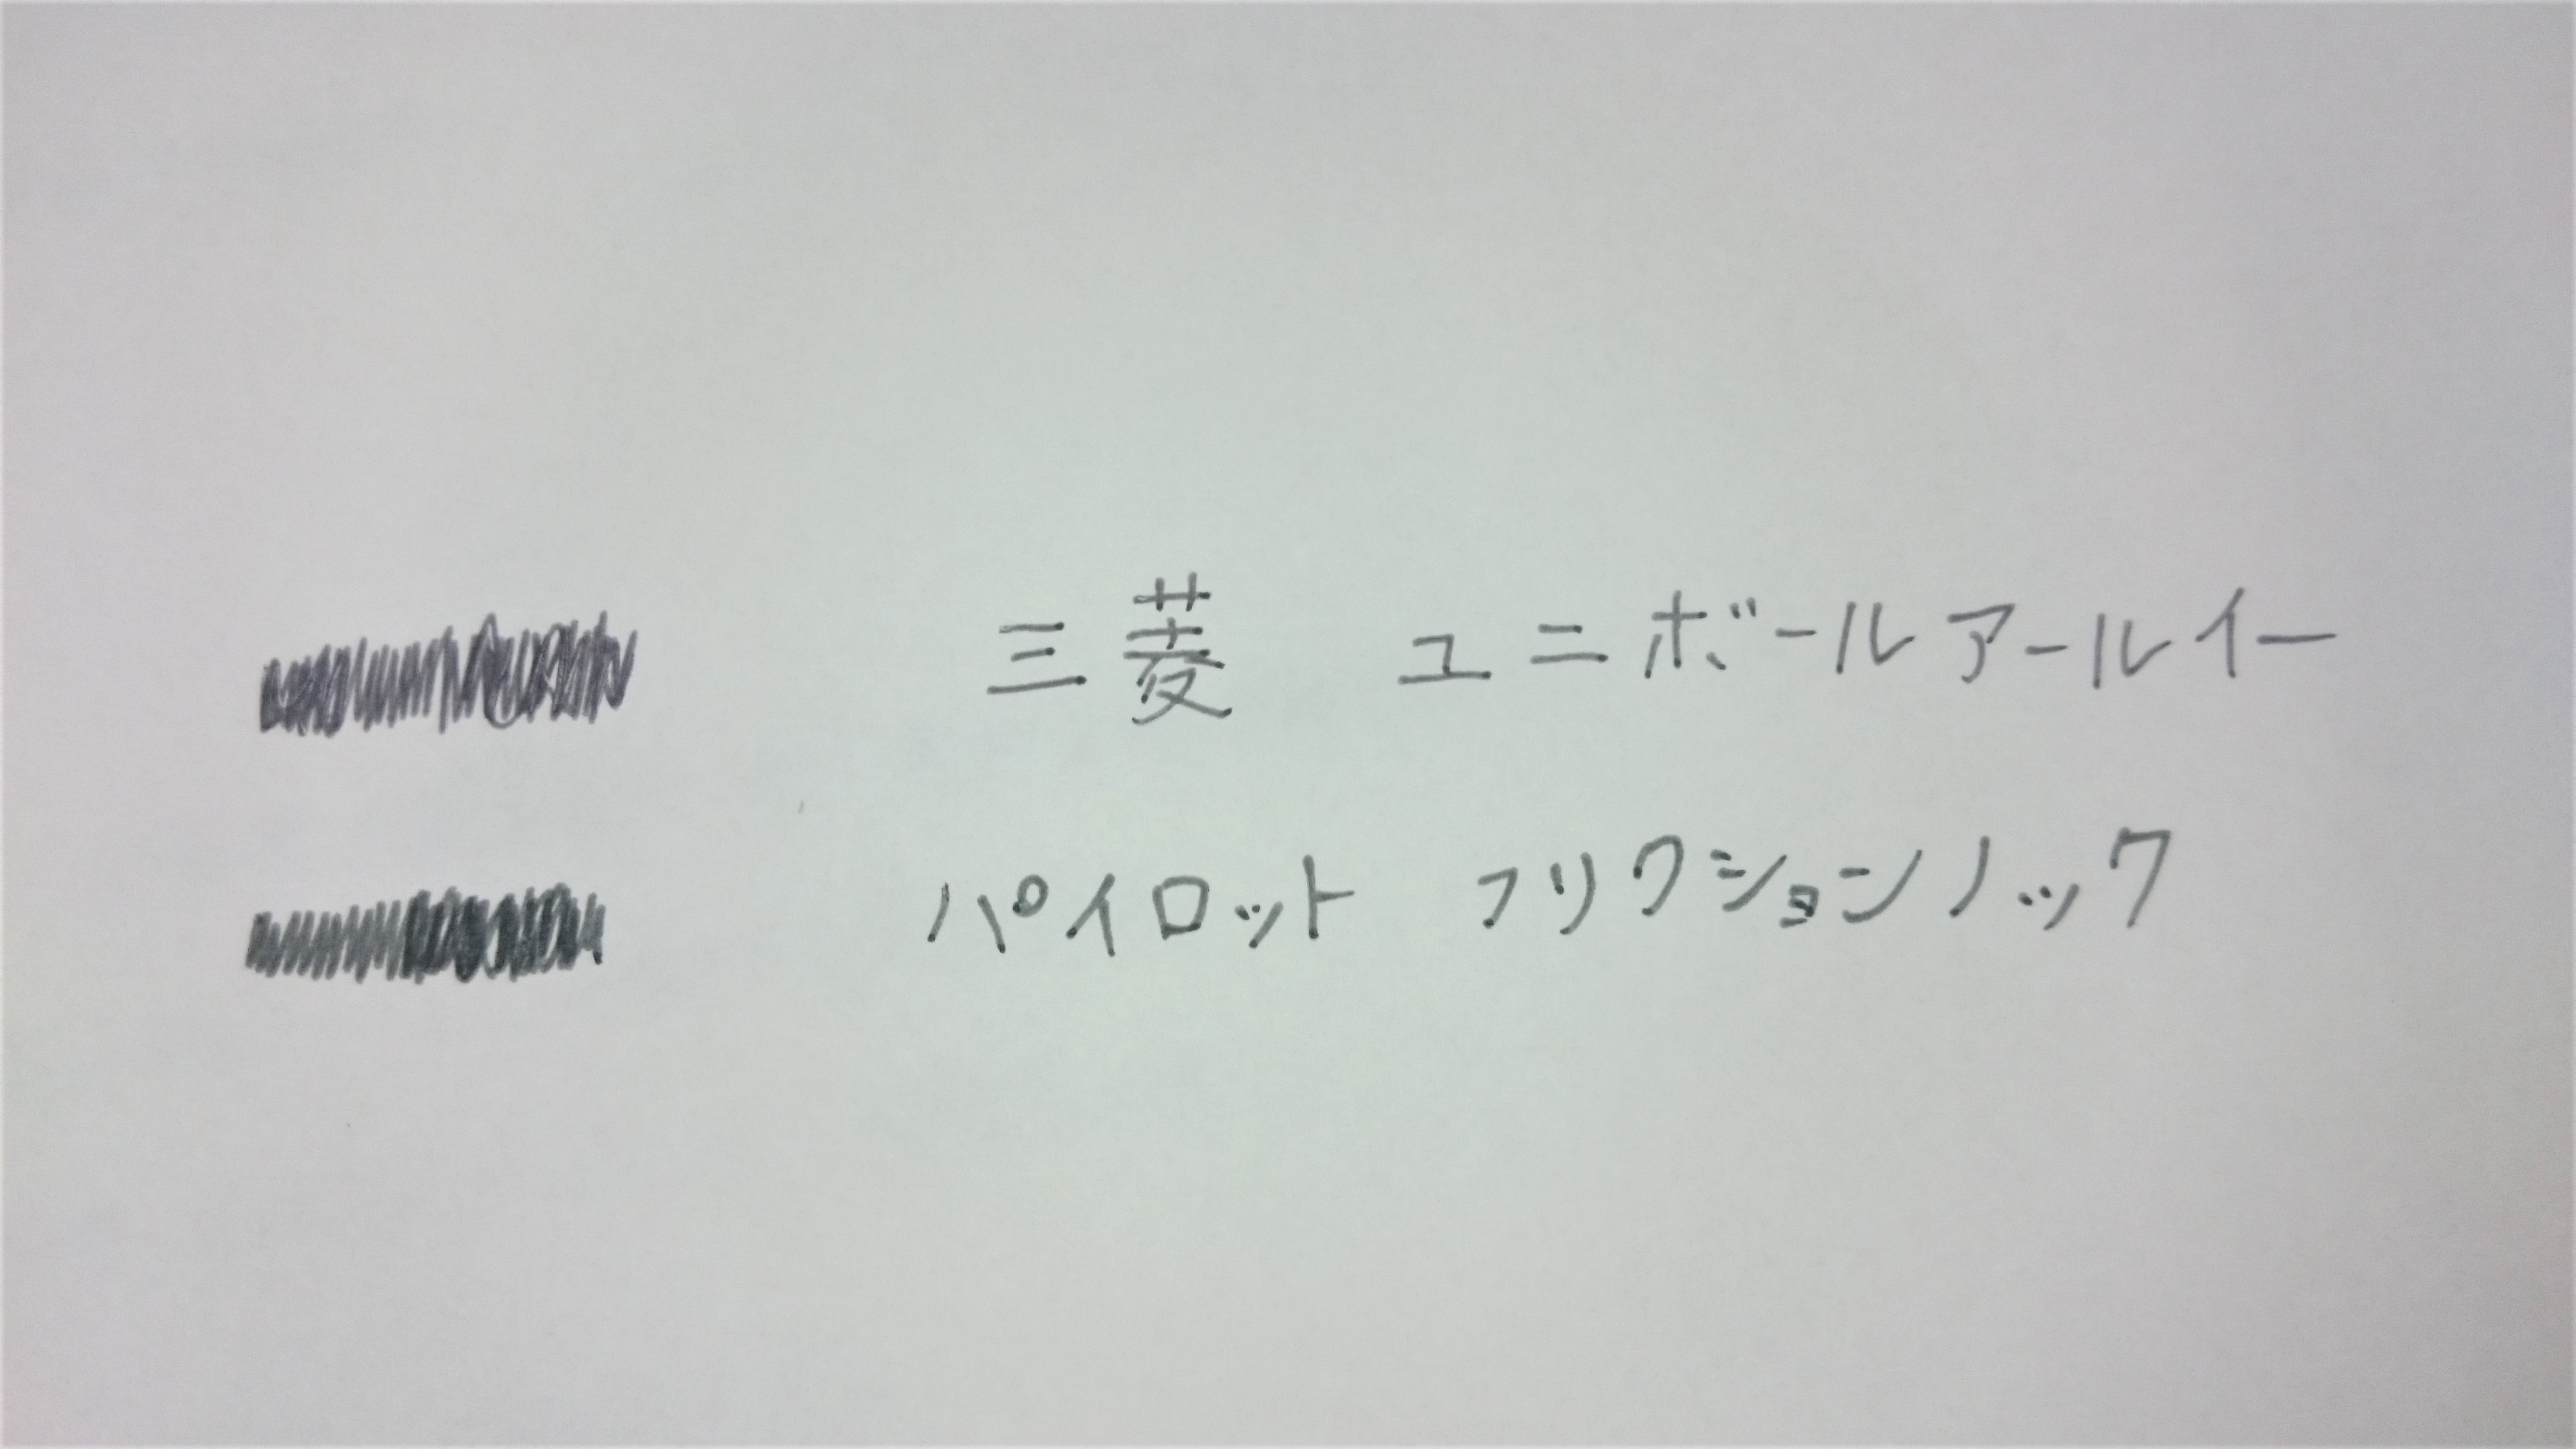 三菱 ユニボールアールイー
パイロット フリクションノック